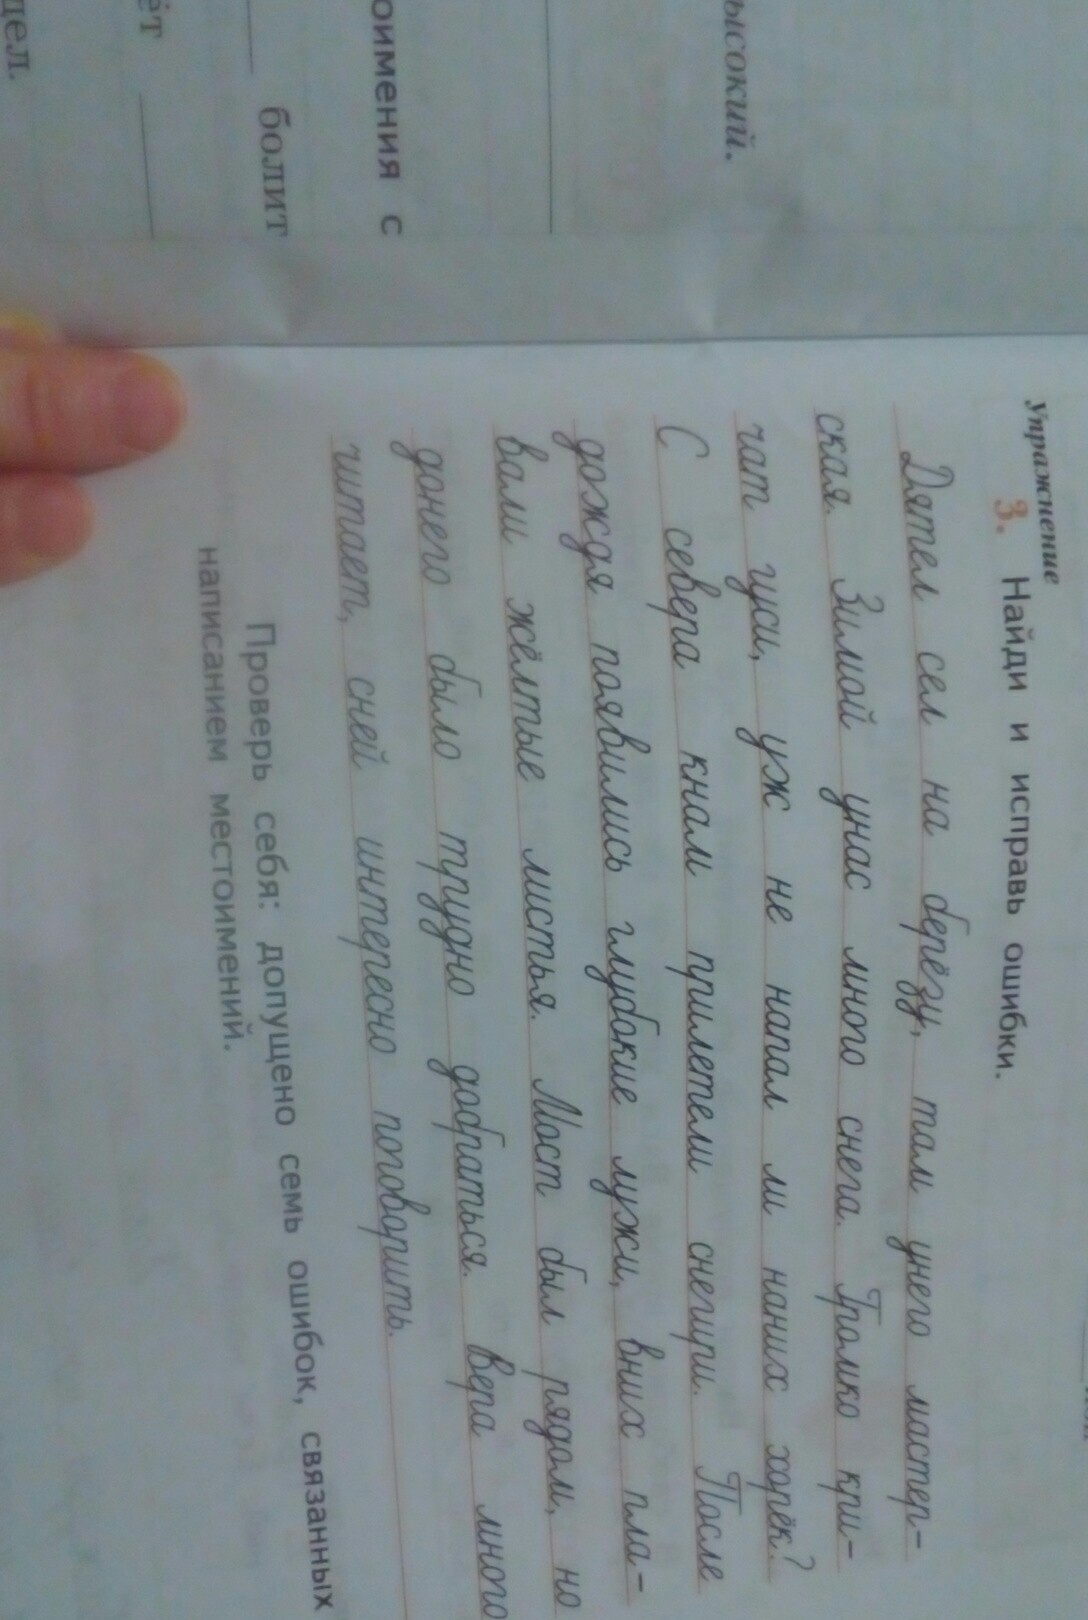 ысокий.
оимения с
болит
ёт
дел.
Упражнение
3. Найди и исправь ошибки.
Дятел сел на берёзу, там унего мастер-
ская. Зимой унас много снега. Громко кри-
чат гуси, уж не напал ли наних хорёк?
С севера кнам прилетели снегири. После
дождя появились глубокие лужи, вних пла-
вали жёлтые листья. Мост был рядом, но
донего было трудно добраться. Вера много
читает, сней интересно поговорить.
Проверь себя: допущено семь ошибок, связанных
написанием местоимений.